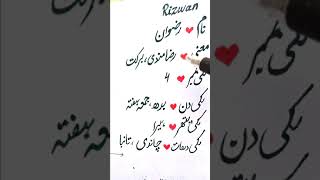 Rizwan
نام ❤ رضوان
معنی ❤ رضامندی، برکت
لکی نمبر ❤ 4
لکی دن ❤ بدھ، جمعہ، ہفتہ
لکی پتھر ❤ ہیرا
لکی دھات ❤ چاندی، تانبا